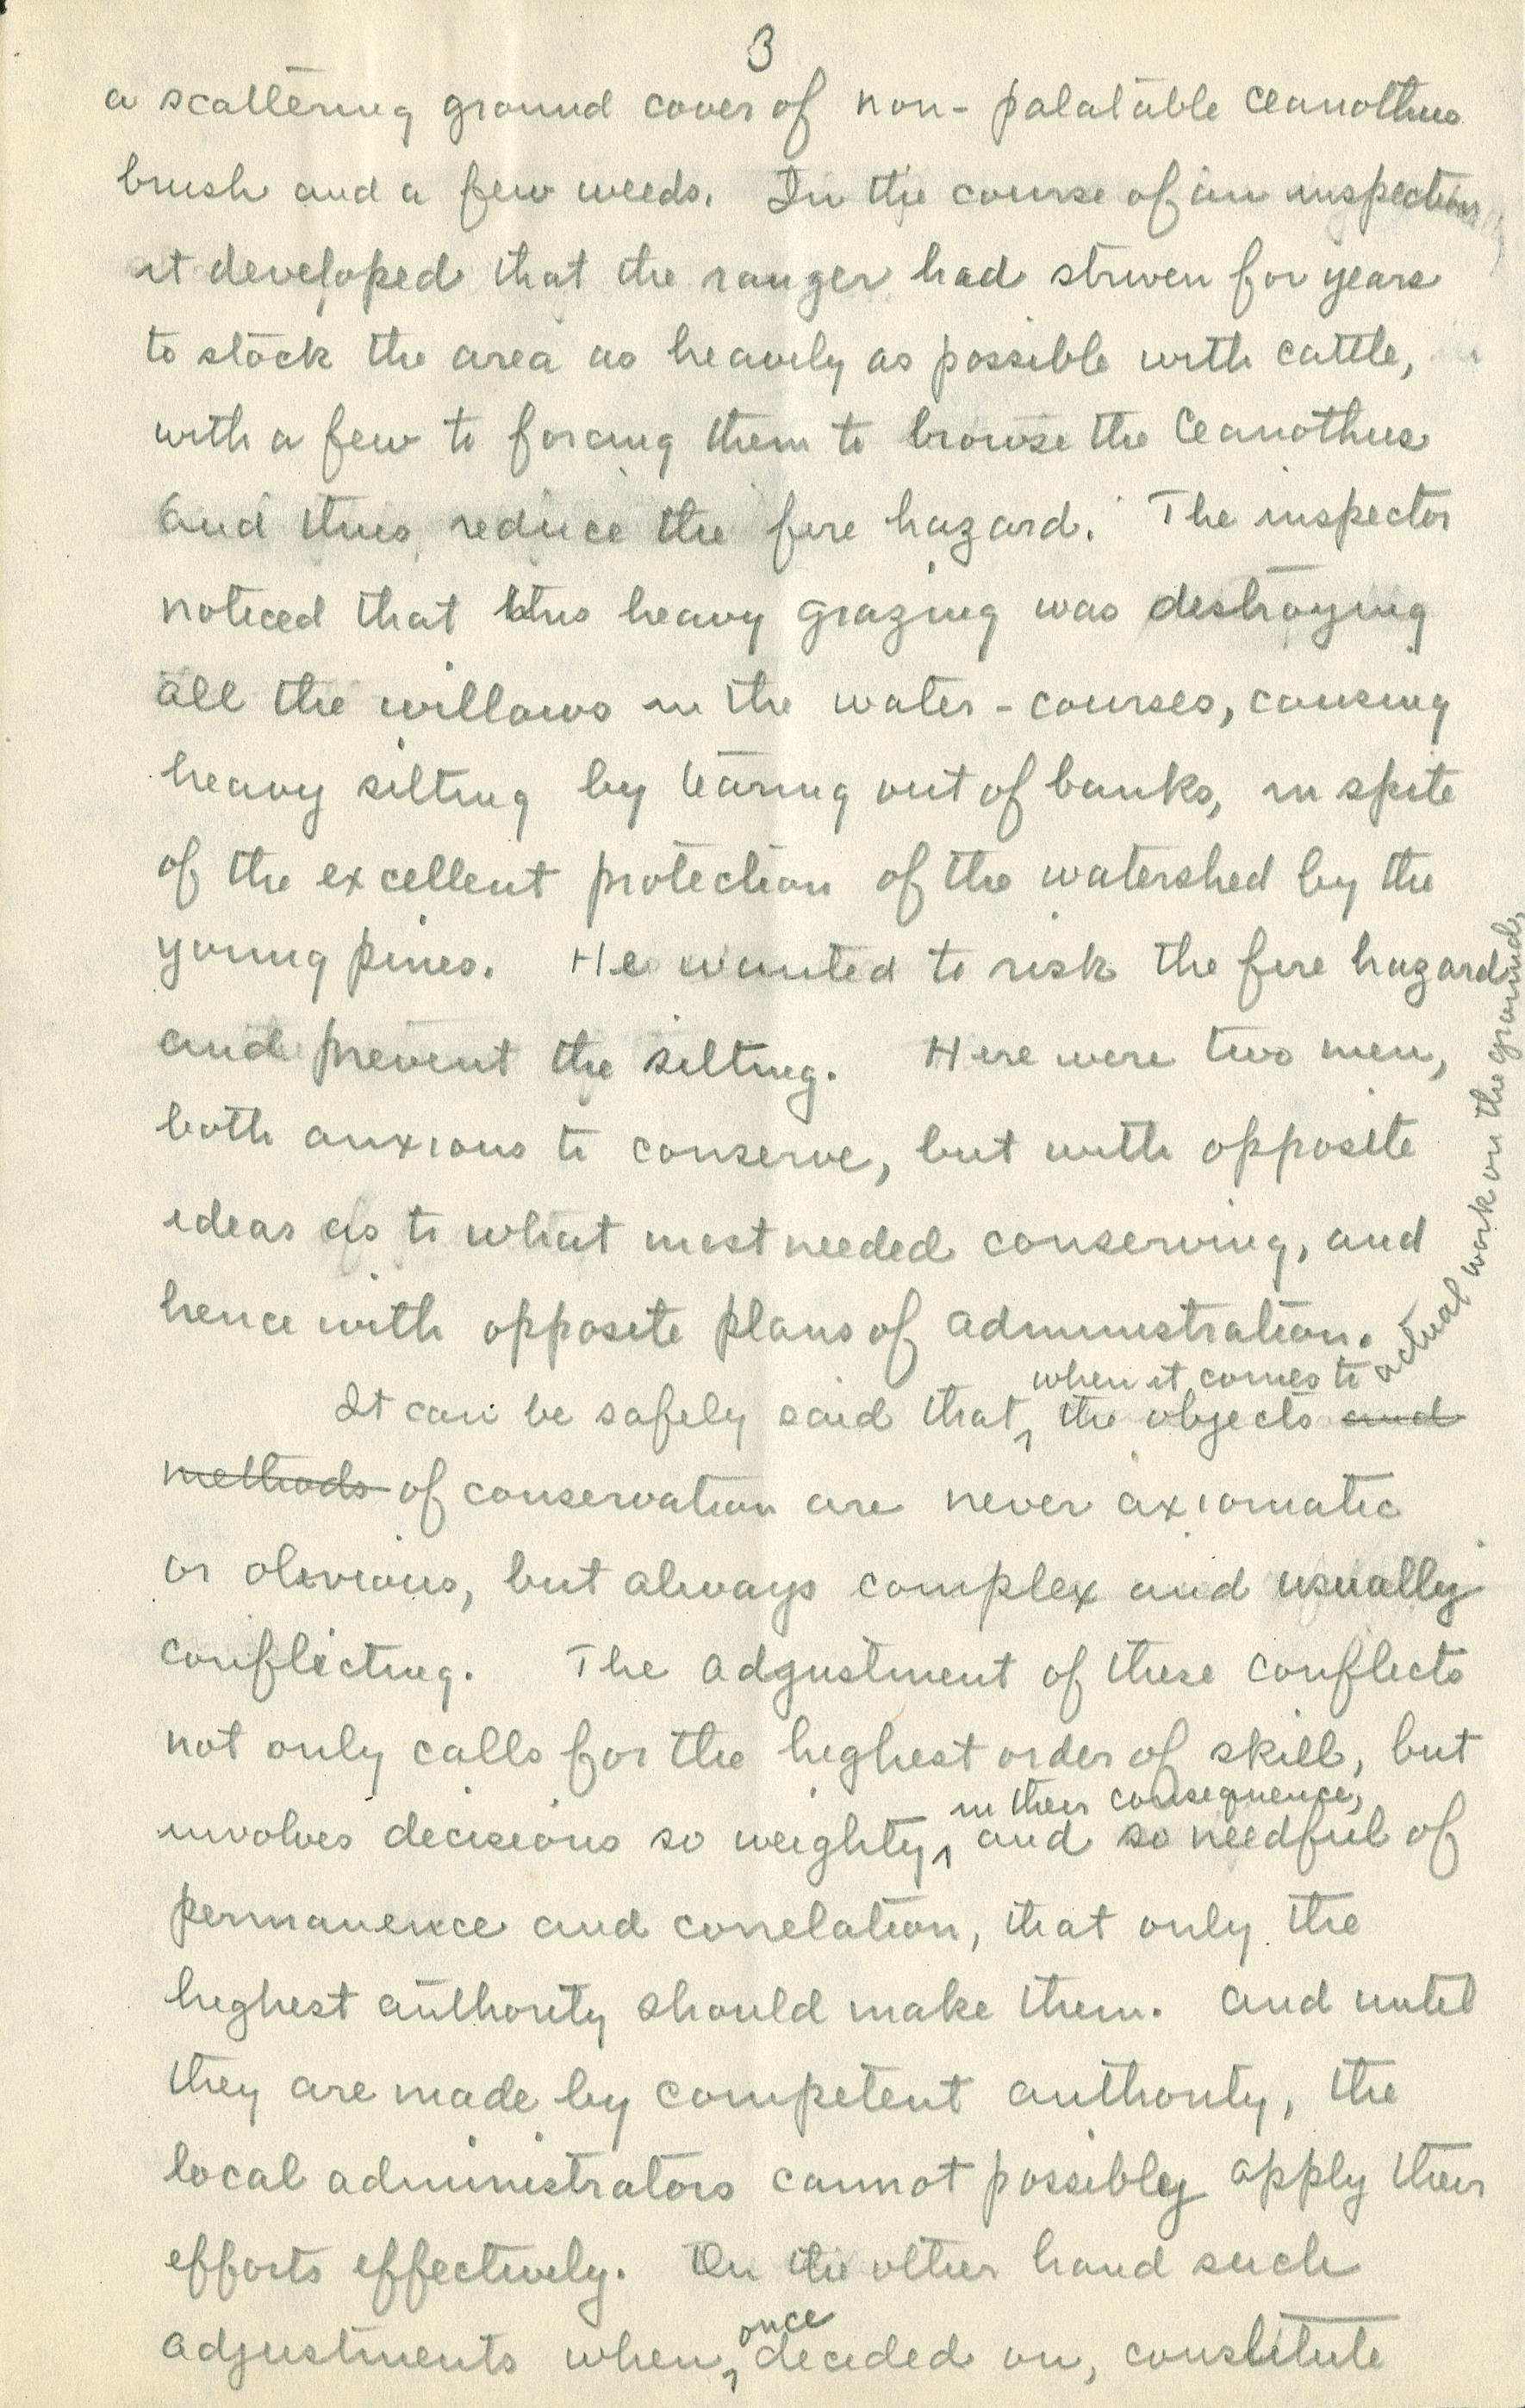 3
a scattering ground cover of non-palatable Ceanothus
brush and a few weeds. In the course of an inspection
it developed that the ranger had striven for years
to stock the area as heavily as possible with cattle,
with a few to forcing them to browse the Ceanothus
and thus reduce the fire hazard. The inspector
noticed that this heavy grazing was destroying
all the willows in the water-courses, causing
heavy silting by tearing out of banks, in spite
of the excellent protection of the watershed by the
young pines. He wanted to risk the fire hazard
and prevent the silting. Here were two men,
both anxious to conserve, but with opposite
ideas as to what most needed conserving, and
hence with opposite plans of administration.
when it comes to actual work on the ground,
It can be safely said that ‸ the objects and
methods of conservation are never axiomatic
or obvious, but always complex and usually
conflicting. The adjustment of these conflicts
not only calls for the highest order of skill, but
in their consequence,
involves decisions so weighty, ‸ and so needful of
permanence and correlation, that only the
highest authority should make them. And until
they are made by competent authority, the
local administrators cannot possibly apply their
efforts effectively. On the other hand such
once
adjustments when, ‸ decided on, constitute